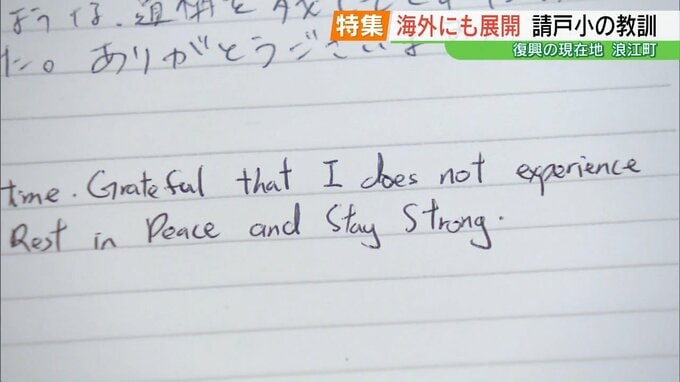 特集 海外にも展開 請戸小の教訓
復興の現在地 浪江町
た。ありがとうござい
time. Grateful that I does not experience
Rest in Peace and Stay Strong.